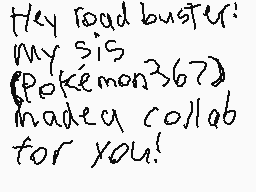 Hey road buster!
my sis
(Pokémon367)
madea collab
for you!